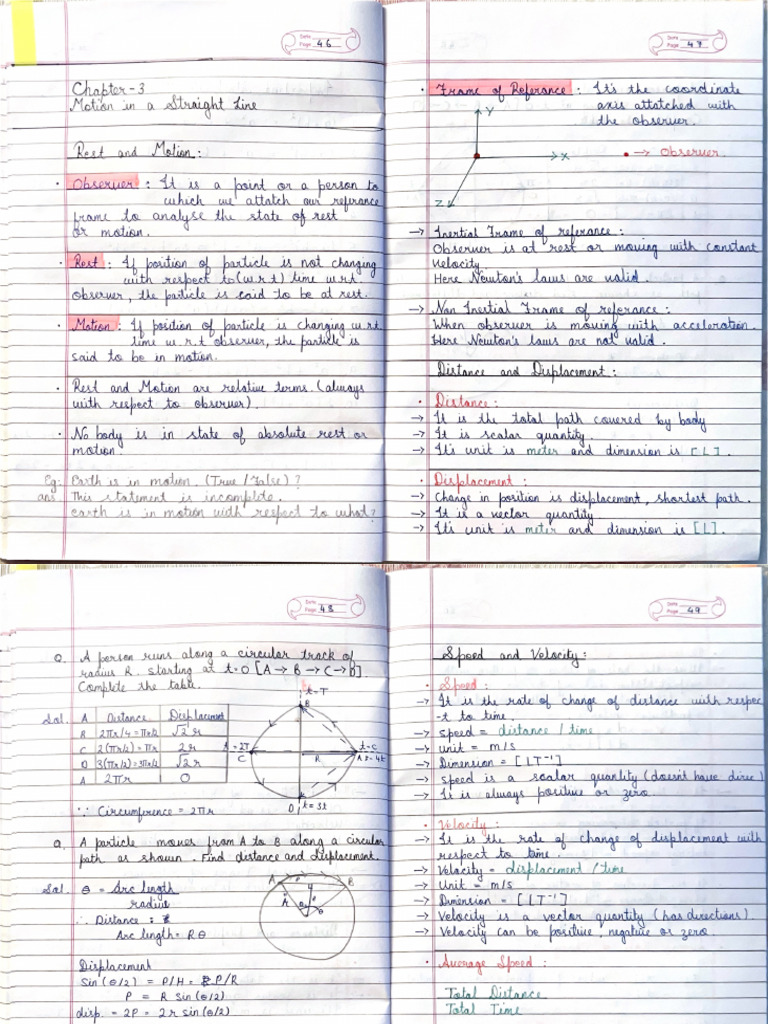 Date
Page 46
Chapter-3
Motion in a Straight Line
Rest and Motion:
· Observer : It is a point or a person to
which we attatch our referance
frame to analyse the state of rest
or motion.
· Rest : If position of particle is not changing
with respect to (w.r.t) time w.r.t.
observer, the particle is said to be at rest.
· Motion : If position of particle is changing w.r.t.
time w.r.t observer, the particle is
said to be in motion.
· Rest and Motion are relative terms. (always
with respect to observer).
· No body is in state of absolute rest or
motion.
Eg: Earth is in motion. (True / False) ?
ans. This statement is incomplete.
earth is in motion with respect to what?
Date
Page 47
· Frame of Referance : It's the coordinate
axis attatched with
the observer.
Y
X
Z
• → Observer
→ Inertial Frame of referance :
Observer is at rest or moving with constant
velocity.
Here Newton's laws are valid.
→ Non Inertial Frame of referance :
When observer is moving with acceleration.
Here Newton's laws are not valid.
Distance and Displacement :
· Distance :
→ It is the total path covered by body
→ It is scalar quantity.
→ It's unit is meter and dimension is [L].
· Displacement :
→ Change in position is displacement, shortest path.
→ It is a vector quantity
→ It's unit is meter and dimension is [L].
Date
Page 48
Q. A person runs along a circular track of
radius R. starting at t=0 [A→ B → C→ D].
Complete the table.
Sol. A Distance Displacement
B 2πr/4 = πr/2 √2 r
C 2(πr/2) = πr 2r
D 3(πr/2) = 3πr/2 √2 r
A 2πr 0
t=T
B
=2T
C
R
A
D t=3t
∵ Circumference = 2πr
Q. A particle moves from A to B along a circular
path as shown. Find distance and displacement.
Sol. θ = Arc length
radius
∴ Distance :
Arc length = Rθ
A
B
Displacement
Sin (θ/2) = P/H = P/R
P = R sin (θ/2)
disp. = 2P = 2r sin (θ/2)
Date
Page 49
Speed and Velocity :
· Speed :
→ It is the rate of change of distance with respec
-t to time.
→ speed = distance / time
→ unit = m/s
→ Dimension = [LT⁻¹]
→ speed is a scalar quantity (doesn't have direc)
→ It is always positive or zero.
· Velocity :
→ It is the rate of change of displacement with
respect to time.
→ Velocity = displacement / time
→ Unit = m/s
→ Dimension = [LT⁻¹]
→ Velocity is a vector quantity (has directions).
→ Velocity can be positive, negative or zero.
· Average Speed :
Total Distance
Total Time